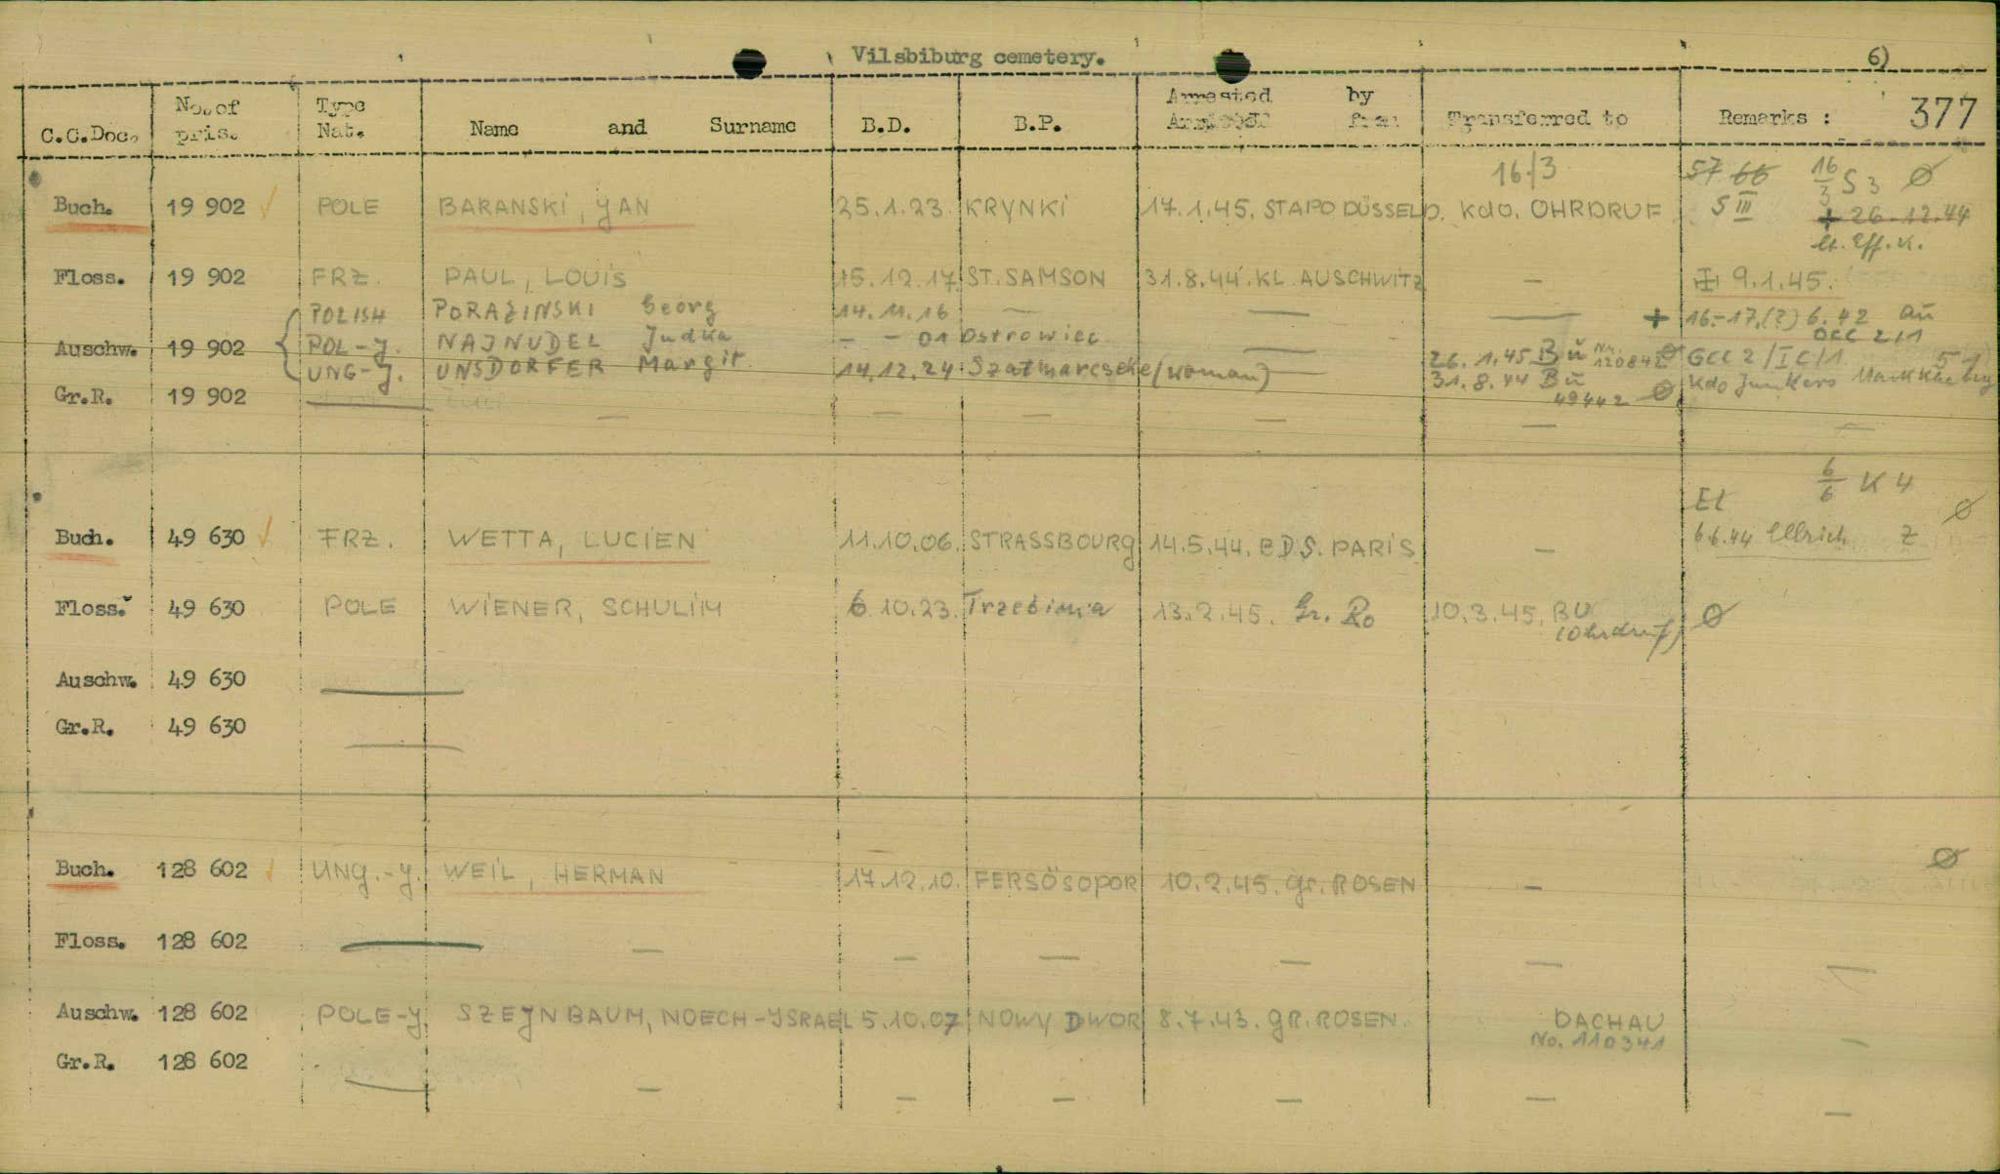 Vilsbiburg cemetery.
6)
C.C.Doc. No. of pris. Type Nat. Name and Surname B.D. B.P. Arrested by from Transferred to Remarks : 377
16/3 57 66 16/3 S 3 Ø
Buch. 19 902 POLE BARANSKI, YAN 25.1.23. KRYNKI 17.1.45. STAPO DÜSSELD. Kdo. OHRDRUF S III + 26.12.44
lt. Eff.K.
Floss. 19 902 FRZ. PAUL, LOUIS 15.12.17. ST. SAMSON 31.8.44. KL AUSCHWITZ — 9.1.45.
POLISH PORAZINSKI Georg 14.11.16 — — — + 16.-17.(?) 6.42 Au
OCC 2/1
Auschw. 19 902 POL-J. NAJNUDEL Judka - - 01 Ostrowiec — 26.1.45 Bu Nr. 120842 Ø GCC 2/IC/1 51
UNG-J. UNSDORFER Margit 14.12.24 Szatmarcseke (woman) — 31.8.44 Bu 49442 Ø Kdo Junkers Markkleeberg
Gr.R. 19 902 — — — — — — —
6/6 K 4
Et Ø
Buch. 49 630 FRZ. WETTA, LUCIEN 11.10.06. STRASSBOURG 14.5.44. BDS. PARIS — 6.6.44 Ellrich Z
Floss. 49 630 POLE WIENER, SCHULIM 6.10.23. Trzebinia 13.2.45. Gr. Ro 10.3.45. BU Ø
(Ohrdruf)
Auschw. 49 630 —
Gr.R. 49 630 —
Buch. 128 602 UNG.-Y. WEIL, HERMAN 17.12.10. FERSÖSOPOR 10.2.45. Gr. ROSEN — Ø
Floss. 128 602 — — — — — — —
Auschw. 128 602 POLE-Y. SZEJNBAUM, NOECH-JSRAEL 5.10.07 NOWY DWOR 8.7.43. GR. ROSEN. DACHAU —
No. 110341
Gr.R. 128 602 — — — — — — —